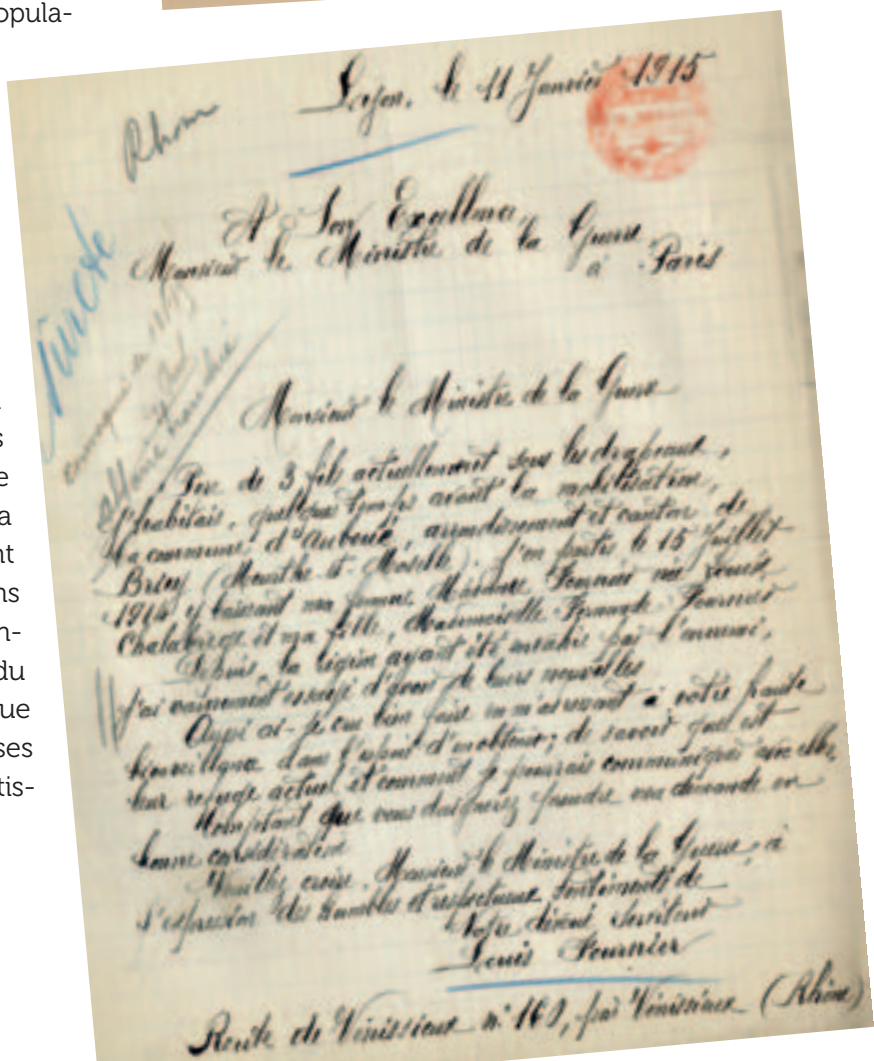 opula-
s
e
a
nt
ns
n-
du
ue
ses
tis-
Lyon, le 11 Janvier 1915
Rhône
A Son Excellence,
Monsieur le Ministre de la Guerre
à Paris
Monsieur le Ministre de la Guerre
Père de 3 fils actuellement sous les drapeaux,
j'habitais, quelque temps avant la mobilisation,
la commune d'Auboué, arrondissement et canton de
Briey (Meurthe-et-Moselle). J'en partis le 15 Juillet
1914 y laissant ma femme, Madame Fournier née
et ma fille, Mademoiselle Fournier
Depuis, la région ayant été envahie par l'ennemi,
j'ai vainement essayé d'avoir de leurs nouvelles
Aussi ai-je cru bien faire en m'adressant à votre haute
bienveillance dans l'espoir d'obtenir; de savoir quel est
leur refuge actuel et comment je pourrais communiquer avec elles
Comptant que vous daignerez prendre ma demande en
bonne considération
Veuillez croire, Monsieur le Ministre de la Guerre, à
l'expression des humbles et respectueux sentiments de
Votre dévoué serviteur
Louis Fournier
Route de Vénissieux n° 160, par Vénissieux (Rhône)